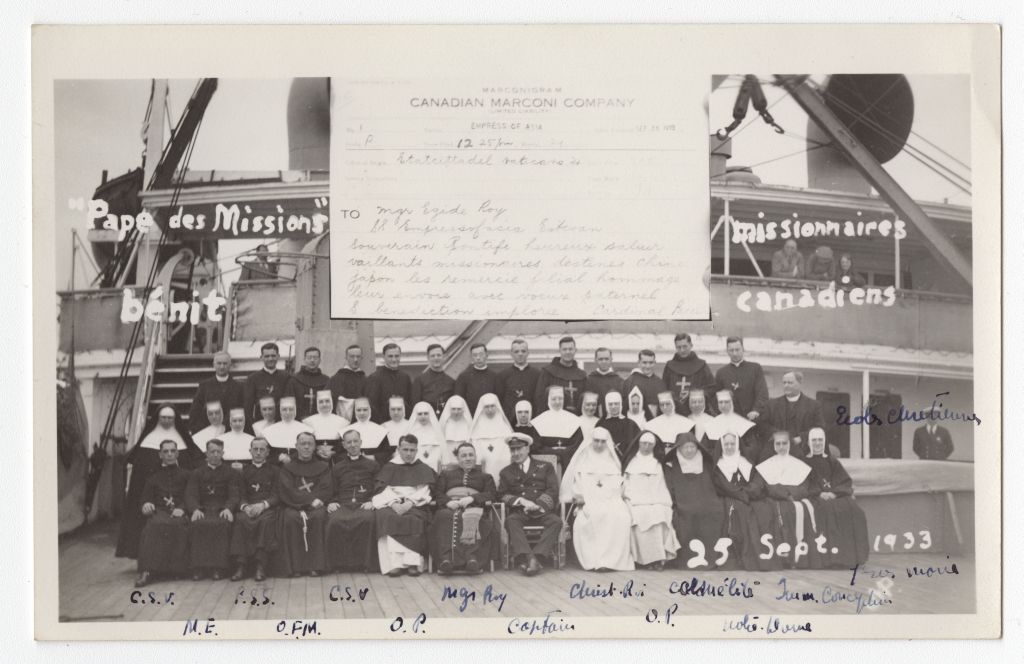 MARCONIGRAM
CANADIAN MARCONI COMPANY
(LIMITED LIABILITY)
EMPRESS OF ASIA
P 12 25pm
Etatcittadel vaticano 21
TO Mgr Egide Roy
SS Empressofasia Estevan
Souverain Pontife heureux saluer
vaillants missionaires destines Chine
Japon les remercie filial hommage
leur envoie avec voeux paternel
S benediction imploree Cardinal
"Pape des Missions"
bénit
missionnaires
canadiens
Ecoles Chrétiennes
25 Sept. 1933
C.S.V. P.S.S. C.S.V Mgr Roy Christ-Roi Imm. Conception
M.E. O.F.M. O.P. Captain O.P. Notre-Dame